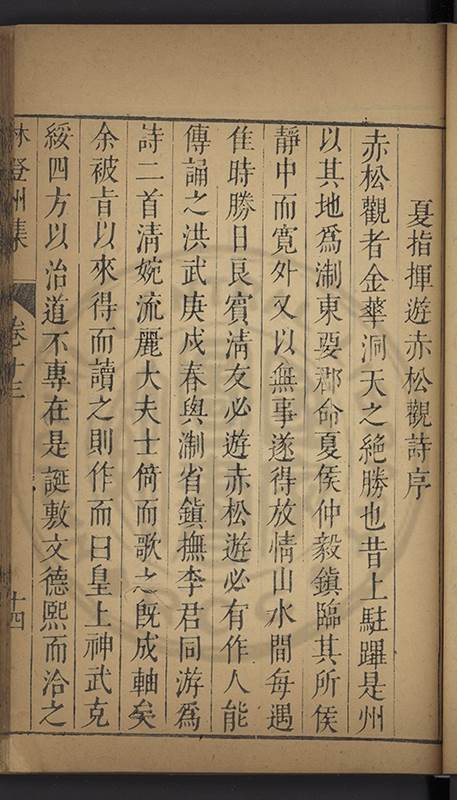 夏指揮遊赤松觀詩序
赤松觀者金華洞天之絶勝也昔上駐蹕是州
以其地爲浙東要郡命夏侯仲毅鎮臨其所侯
靜中而寬外又以無事遂得放情山水間每遇
佳時勝日良賓清友必遊赤松遊必有作人能
傳誦之洪武庚戌春與浙省鎮撫李君同游爲
詩二首清婉流麗大夫士倚而歌之旣成軸矣
余被旨以來得而讀之則作而曰皇上神武克
綏四方以治道不專在是誕敷文德熙而洽之
林登州集
卷十三
十四